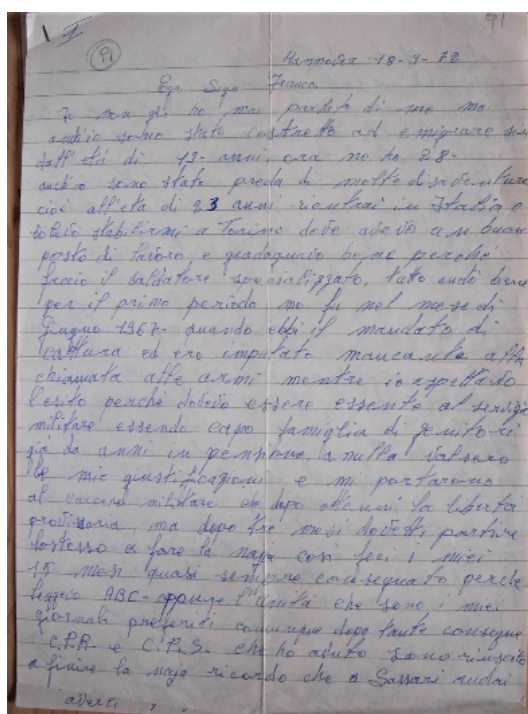 91
91
Hannover 18-9-72
Egr. Sign Franco.
Io non gli ho mai parlato di me ma
anch'io sono stato costretto ad emigrare sin
dall'età di 13- anni, ora ne ho 28-
anch'io sono stato preda di molte disavventure
cioè all'età di 23 anni rientrai in Italia e
volevo stabilirmi a Torino dove avevo un buon
posto di lavoro, e guadagnavo bene perché
faccio il saldatore specializzato, tutto andò bene
per il primo periodo ma fu nel mese di
Giugno 1967- quando ebbi il mandato di
cattura ed ero imputato mancante alla
chiamata alle armi mentre io aspettavo
l'esito perché dovevo essere essente al servizio
militare essendo capo famiglia di genitori
già da anni in pensione, a nulla valsero
le mie giustificazioni e mi portarono
al carcere militare che dopo ottenni la libertà
provisoria, ma dopo tre mesi dovetti partire
lostesso a fare la naja così feci i miei
15 mesi quasi sempre consegnato perché
leggevo ABC- oppure l'unità che sono i miei
giornali preferiti comunque dopo tante consegne
C.P.R. e C.P.S. che ho avuto sono riuscito
a finire la naja ricordo che a Sassari andai